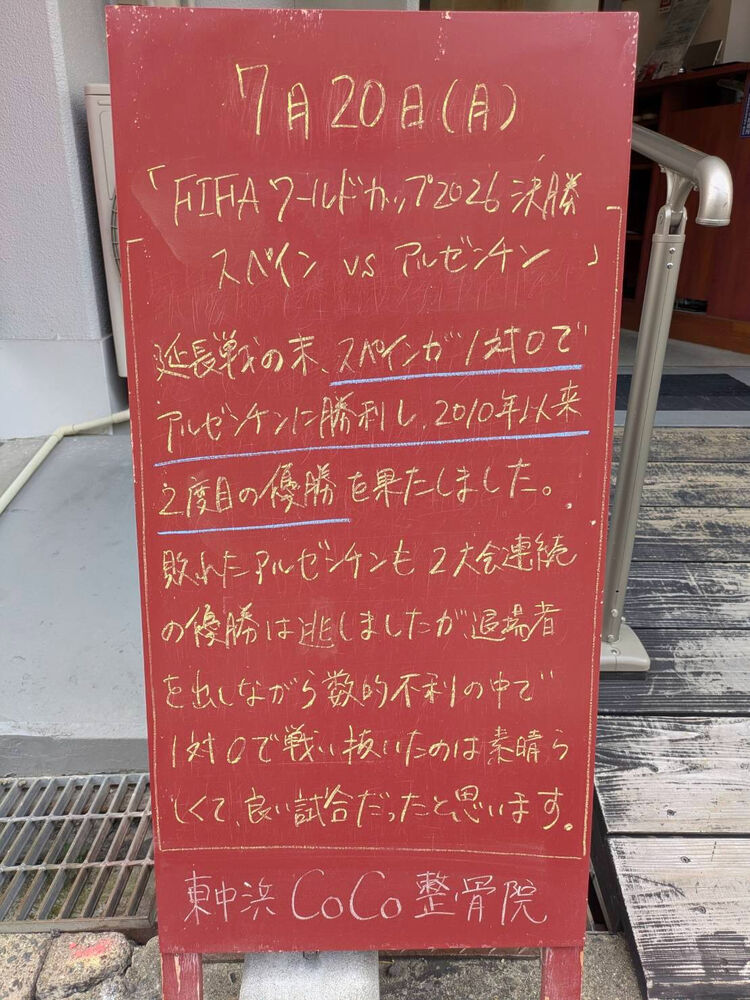 7月20日(月)
「FIFAワールドカップ2026決勝
スペイン vs アルゼンチン」
延長戦の末、スペインが1対0で
アルゼンチンに勝利し、2010年以来
2度目の優勝を果たしました。
敗れたアルゼンチンも2大会連続
の優勝は逃しましたが、退場者
を出しながら数的不利の中で
1対0で戦い抜いたのは素晴ら
しくて、良い試合だったと思います。
東中浜CoCo整骨院